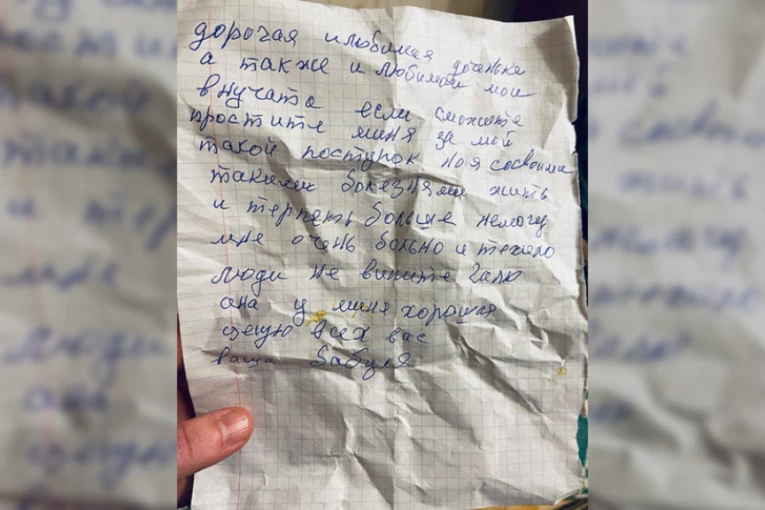 дорогая и любимая доченька
а также и любимаи мои
внучата если сможите
простите миня за мой
такой поступок ноя сосвоими
такими болезнями жить
и терпеть больше немогу
мне очень больно и тежело
люди не вините Галю
ана у миня хорошая
целую всех вас
ваша бабуля